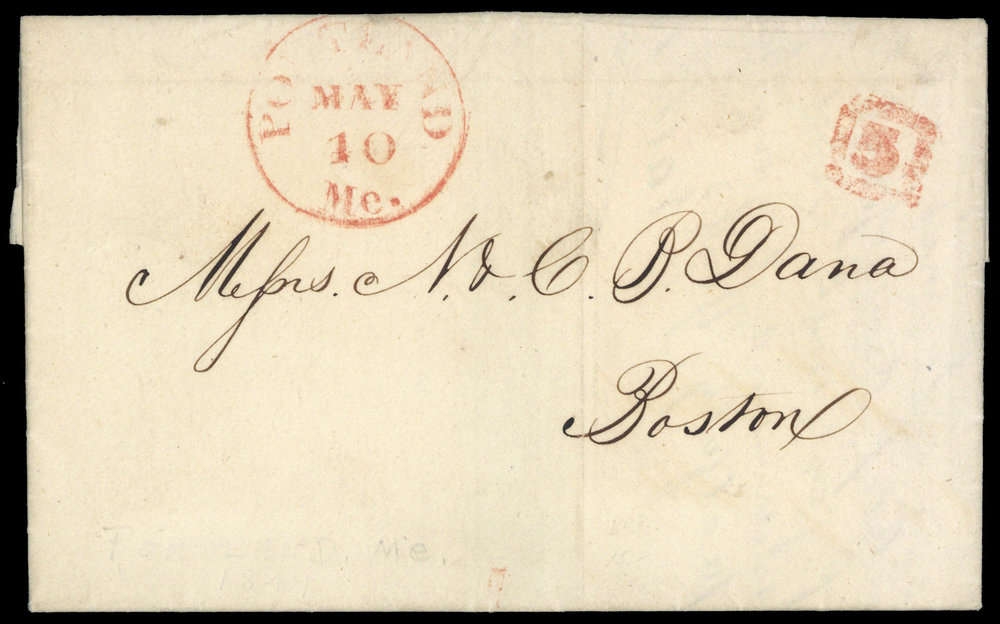 PORTLAND
MAY
10
Me.
5
Messrs. N. & C. P. Dana
Boston
PORTLAND, Me.